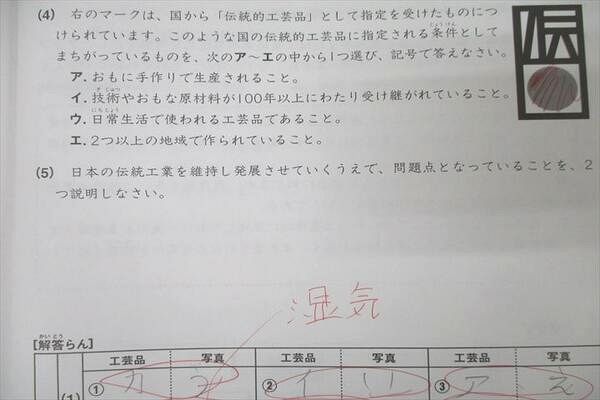 (4) 右のマークは、国から「伝統的工芸品」として指定を受けたものにつ
けられています。このような国の伝統的工芸品に指定される条件として
まちがっているものを、次のア〜エの中から1つ選び、記号で答えなさい。
ア. おもに手作りで生産されること。
イ. 技術やおもな原材料が100年以上にわたり受け継がれていること。
ウ. 日常生活で使われる工芸品であること。
エ. 2つ以上の地域で作られていること。
(5) 日本の伝統工業を維持し発展させていくうえで、問題点となっていることを、2
つ説明しなさい。
湿気
[解答らん]
工芸品 写真 工芸品 写真 工芸品 写真
(1) ① カ ② イ ③ ア え